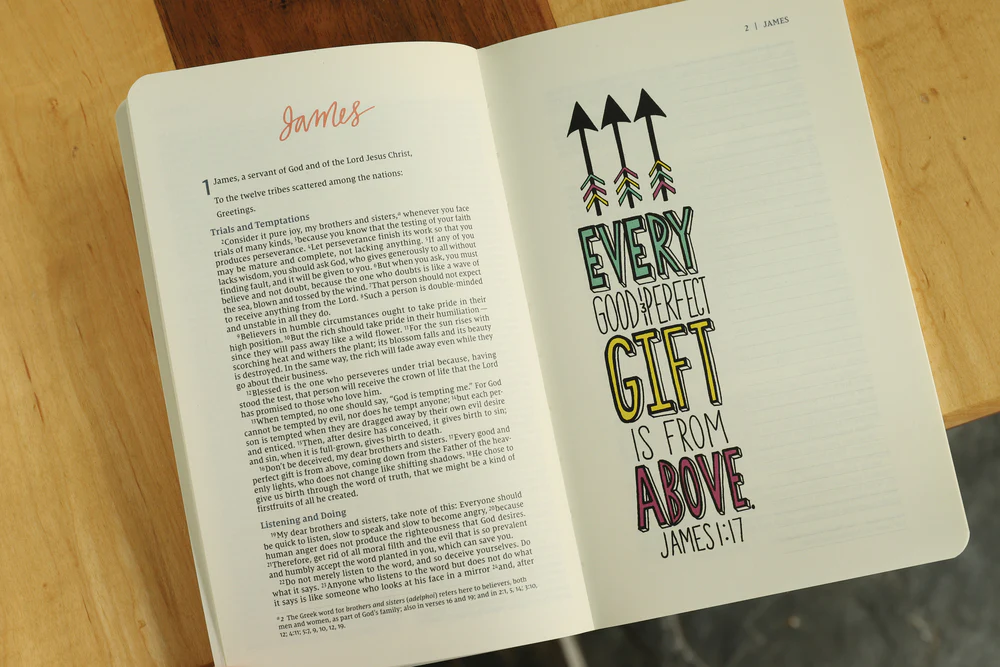 James
1 James, a servant of God and of the Lord Jesus Christ,
To the twelve tribes scattered among the nations:
Greetings.
Trials and Temptations
2Consider it pure joy, my brothers and sisters,a whenever you face
trials of many kinds, 3because you know that the testing of your faith
produces perseverance. 4Let perseverance finish its work so that you
may be mature and complete, not lacking anything. 5If any of you
lacks wisdom, you should ask God, who gives generously to all without
finding fault, and it will be given to you. 6But when you ask, you must
believe and not doubt, because the one who doubts is like a wave of
the sea, blown and tossed by the wind. 7That person should not expect
to receive anything from the Lord. 8Such a person is double-minded
and unstable in all they do.
9Believers in humble circumstances ought to take pride in their
high position. 10But the rich should take pride in their humiliation—
since they will pass away like a wild flower. 11For the sun rises with
scorching heat and withers the plant; its blossom falls and its beauty
is destroyed. In the same way, the rich will fade away even while they
go about their business.
12Blessed is the one who perseveres under trial because, having
stood the test, that person will receive the crown of life that the Lord
has promised to those who love him.
13When tempted, no one should say, “God is tempting me.” For God
cannot be tempted by evil, nor does he tempt anyone; 14but each per-
son is tempted when they are dragged away by their own evil desire
and enticed. 15Then, after desire has conceived, it gives birth to sin;
and sin, when it is full-grown, gives birth to death.
16Don’t be deceived, my dear brothers and sisters. 17Every good and
perfect gift is from above, coming down from the Father of the heav-
enly lights, who does not change like shifting shadows. 18He chose to
give us birth through the word of truth, that we might be a kind of
firstfruits of all he created.
Listening and Doing
19My dear brothers and sisters, take note of this: Everyone should
be quick to listen, slow to speak and slow to become angry, 20because
human anger does not produce the righteousness that God desires.
21Therefore, get rid of all moral filth and the evil that is so prevalent
and humbly accept the word planted in you, which can save you.
22Do not merely listen to the word, and so deceive yourselves. Do
what it says. 23Anyone who listens to the word but does not do what
it says is like someone who looks at his face in a mirror 24and, after
a 2 The Greek word for brothers and sisters (adelphoi) refers here to believers, both
men and women, as part of God’s family; also in verses 16 and 19; and in 2:1, 5, 14; 3:10,
12; 4:11; 5:7, 9, 10, 12, 19.
2 | JAMES
EVERY
GOOD & PERFECT
GIFT
IS FROM
ABOVE.
JAMES 1:17